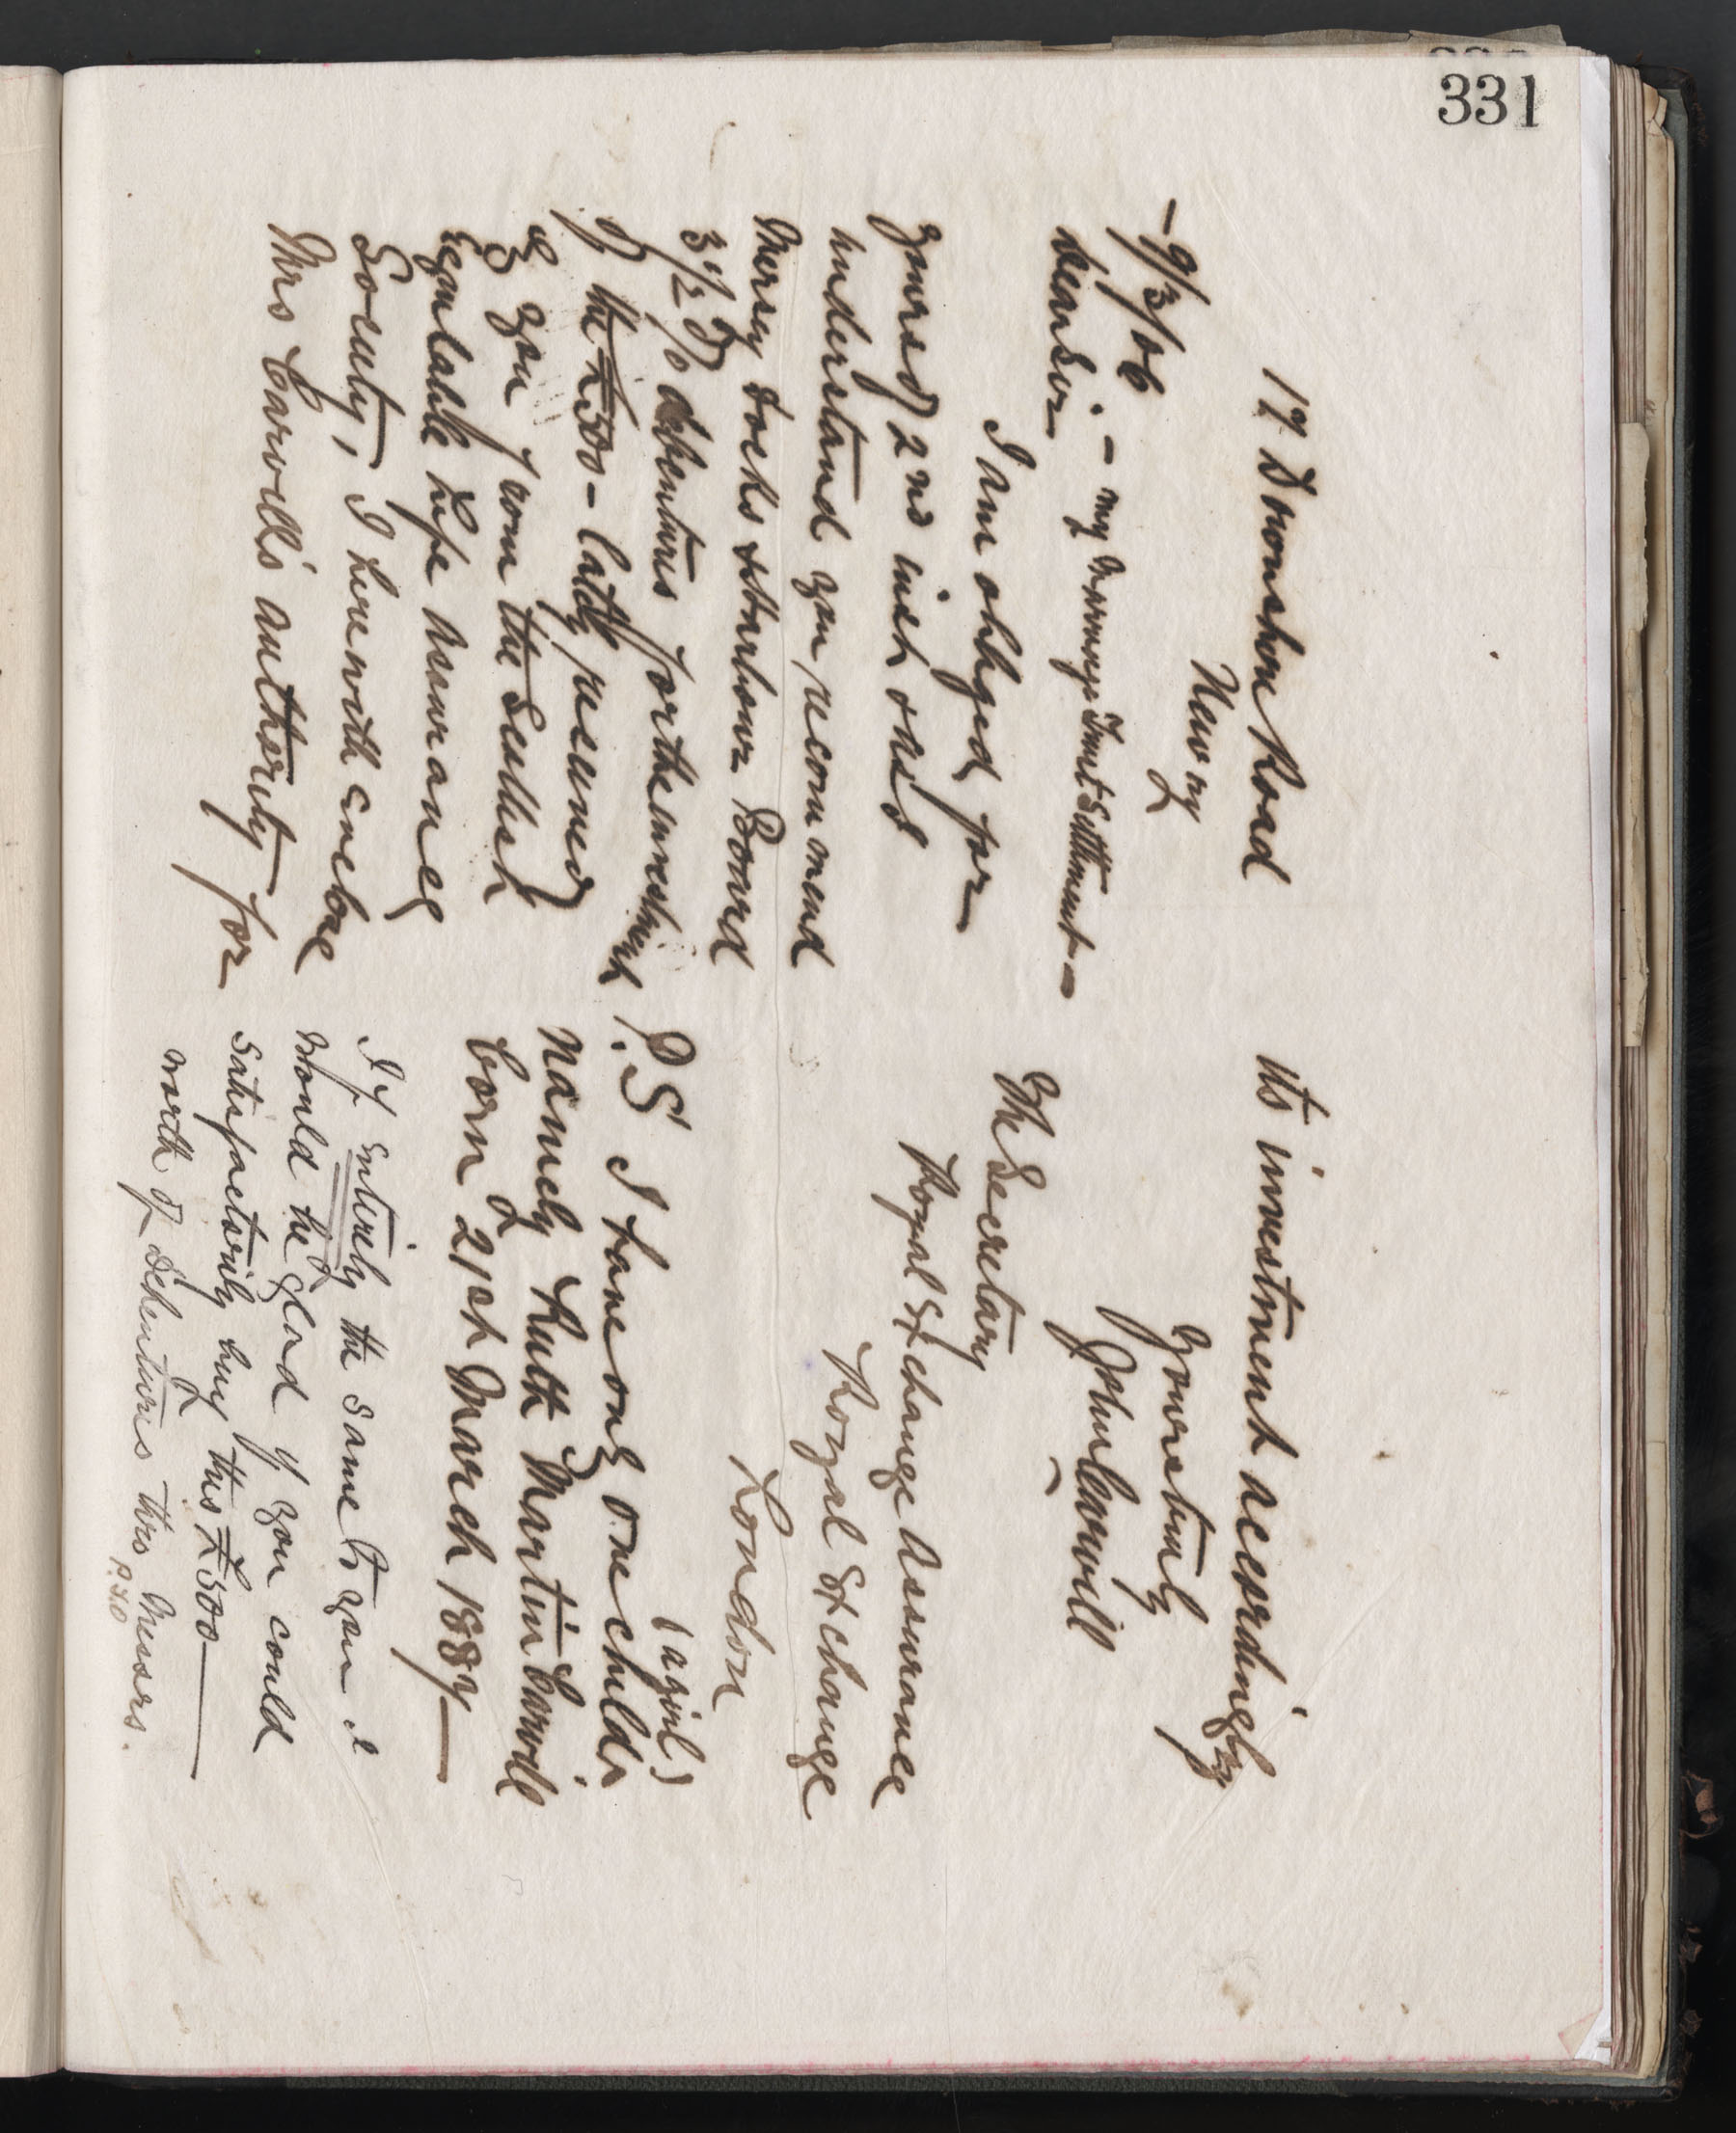 331
17 Downshire Road
Newry
- 9/3/06. - my Marriage Trust Settlement -
Dear Sir
I am obliged for
yours of 2nd inst and
understand you recommend
Mersey Docks & Harbour Board
3½% debentures for the investment
of the £500 - lately received
by you from the Scottish
Equitable Life Assurance
Society, I herewith enclose
Mrs Carvill's authority for
its investment accordingly
Yours truly
John Carvill
The Secretary
Royal Exchange Assurance
Royal Exchange
London
(a girl)
P.S I have only one child,
namely Ruth Martin Carvill
born 21st March 1887
If entirely the same to you I
would be glad if you could
satisfactorily buy this £500
worth of Debentures thro Messrs.
P.T.O